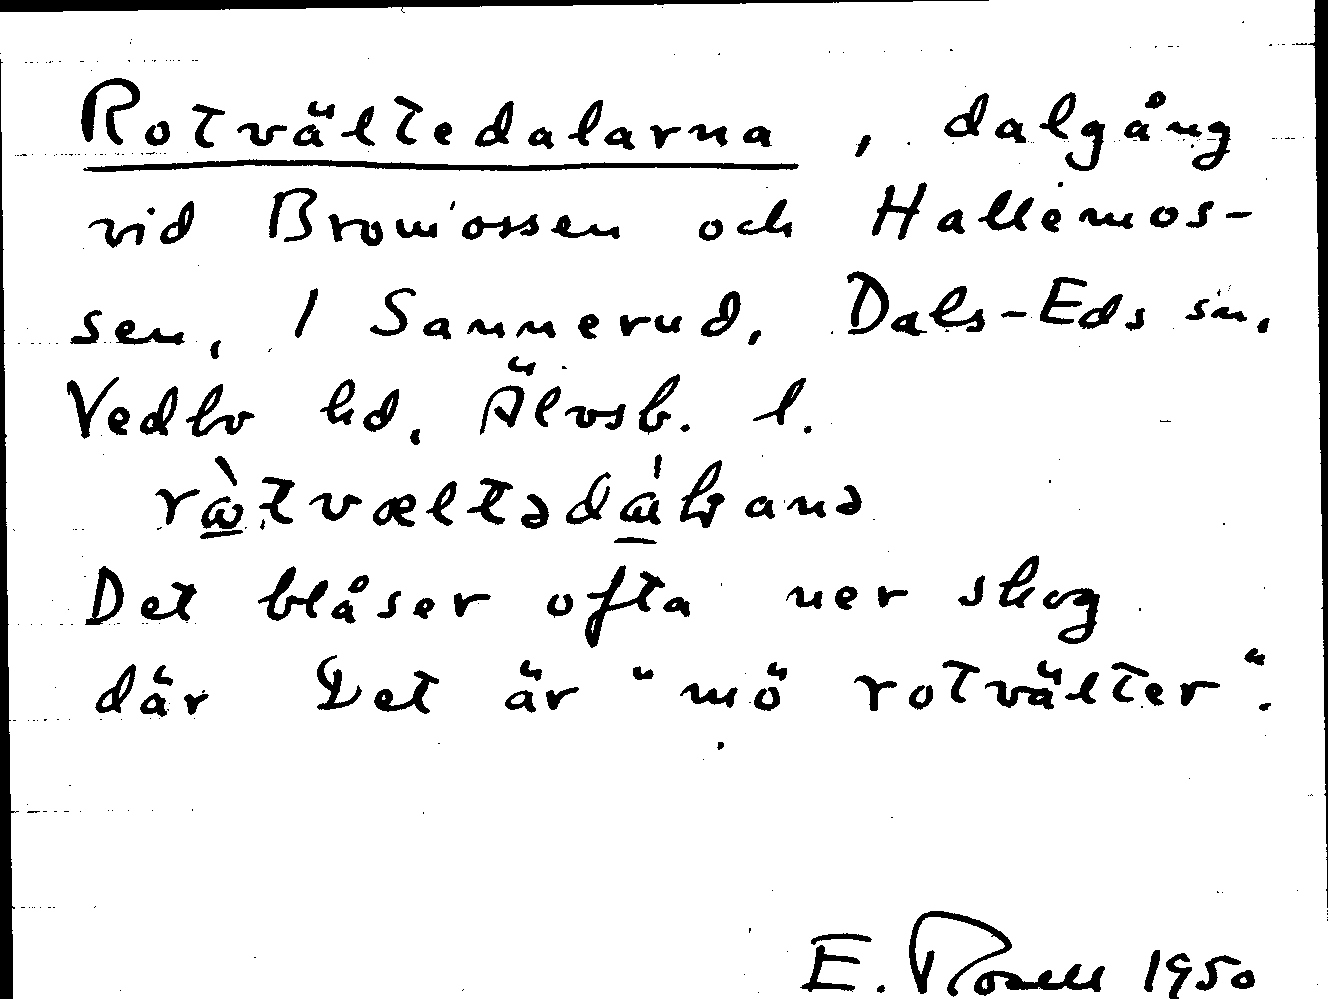 Rotvältedalarna, dalgång
vid Bromossen och Hallemos-
sen, 1 Sannerud, Dals-Eds sn,
Vedbo hd, Älvsb. l.
Det blåser ofta ner skog
där Det är "mö rotvälter".
E. Rosell 1950